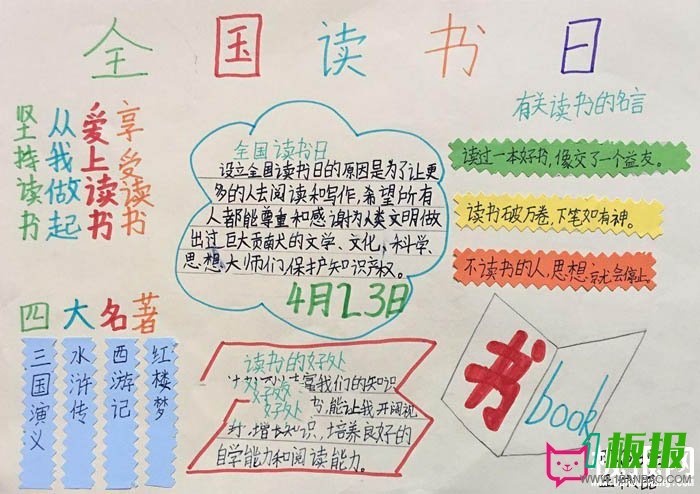 全国读书日
坚持读书
从我做起
爱上读书
享受读书
全国读书日
设立全国读书日的原因是为了让更
多的人去阅读和写作,希望所有
人都能尊重和感谢为人类文明做
出过巨大贡献的文学、文化、科学、
思想大师们保护知识产权。
4月23日
有关读书的名言
读过一本好书,像交了一个益友。
读书破万卷,下笔如有神。
不读书的人,思想就会停止。
四大名著
三国演义
水浒传
西游记
红楼梦
读书的好处
我们的知识
好处
书,能让我开阔视
增长知识,培养良好的
自学能力和阅读能力。
书
book
板报